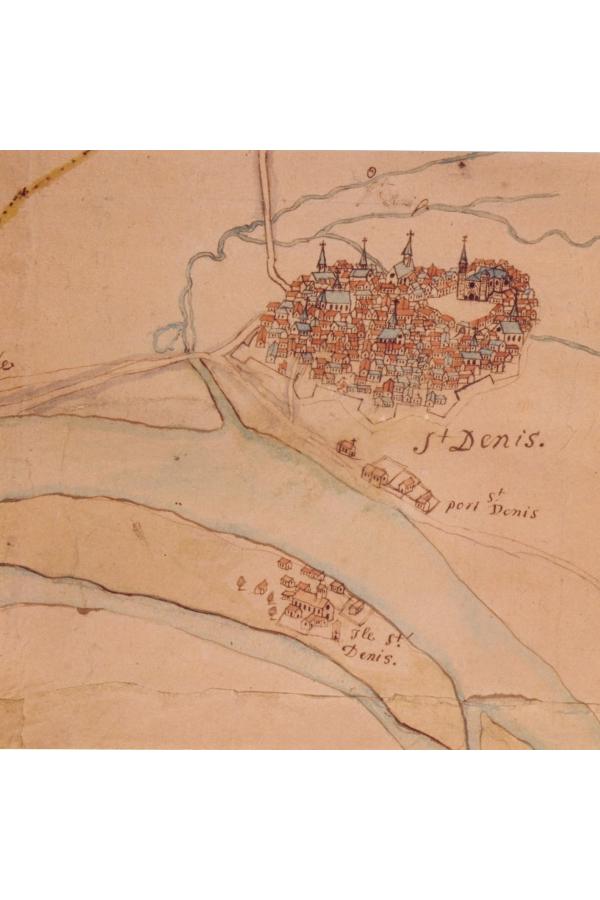 St Denis.
port St
Denis
Ile St
Denis.